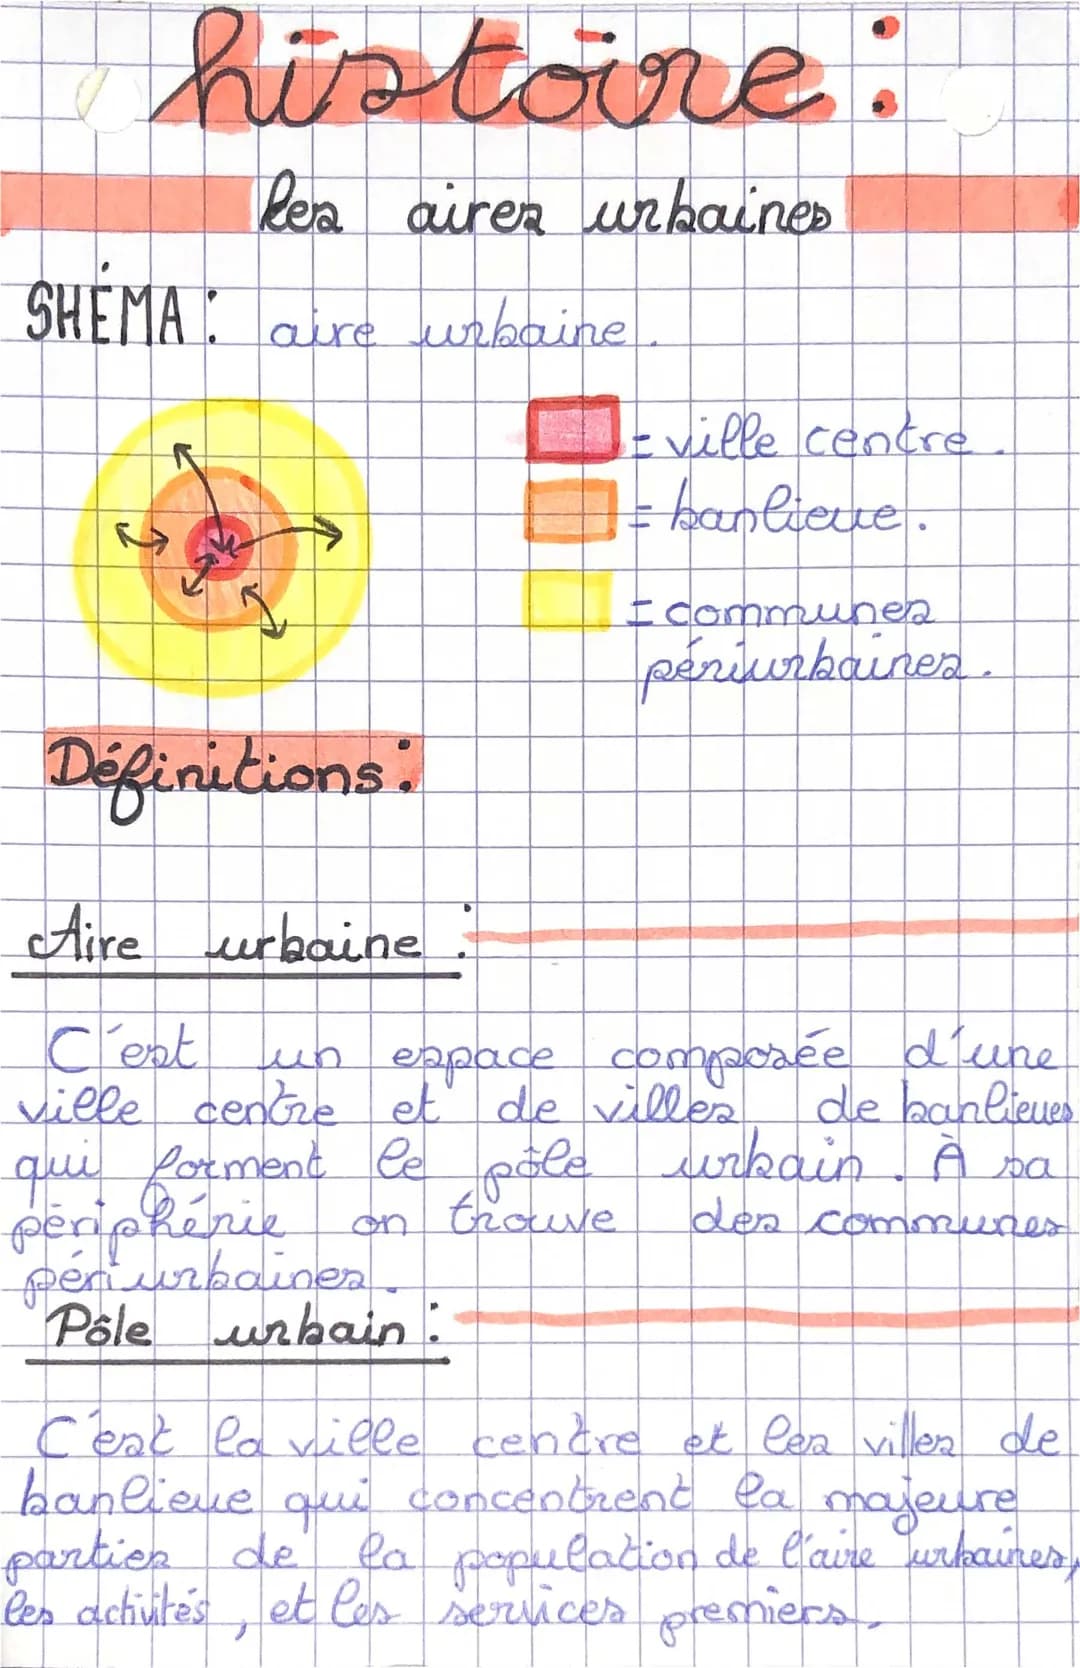 histoire :
les aires urbaines
SHÉMA : aire urbaine.
= ville centre.
= banlieue.
= communes
périurbaines.
Définitions :
Aire urbaine :
C'est un espace composée d'une
ville centre et de villes de banlieues
qui forment le pôle urbain. À sa
périphérie on trouve des communes
périurbaines.
Pôle urbain :
C'est la ville centre et les villes de
banlieue qui concentrent la majeure
parties de la population de l'aire urbaines,
les activités, et les services premiers.